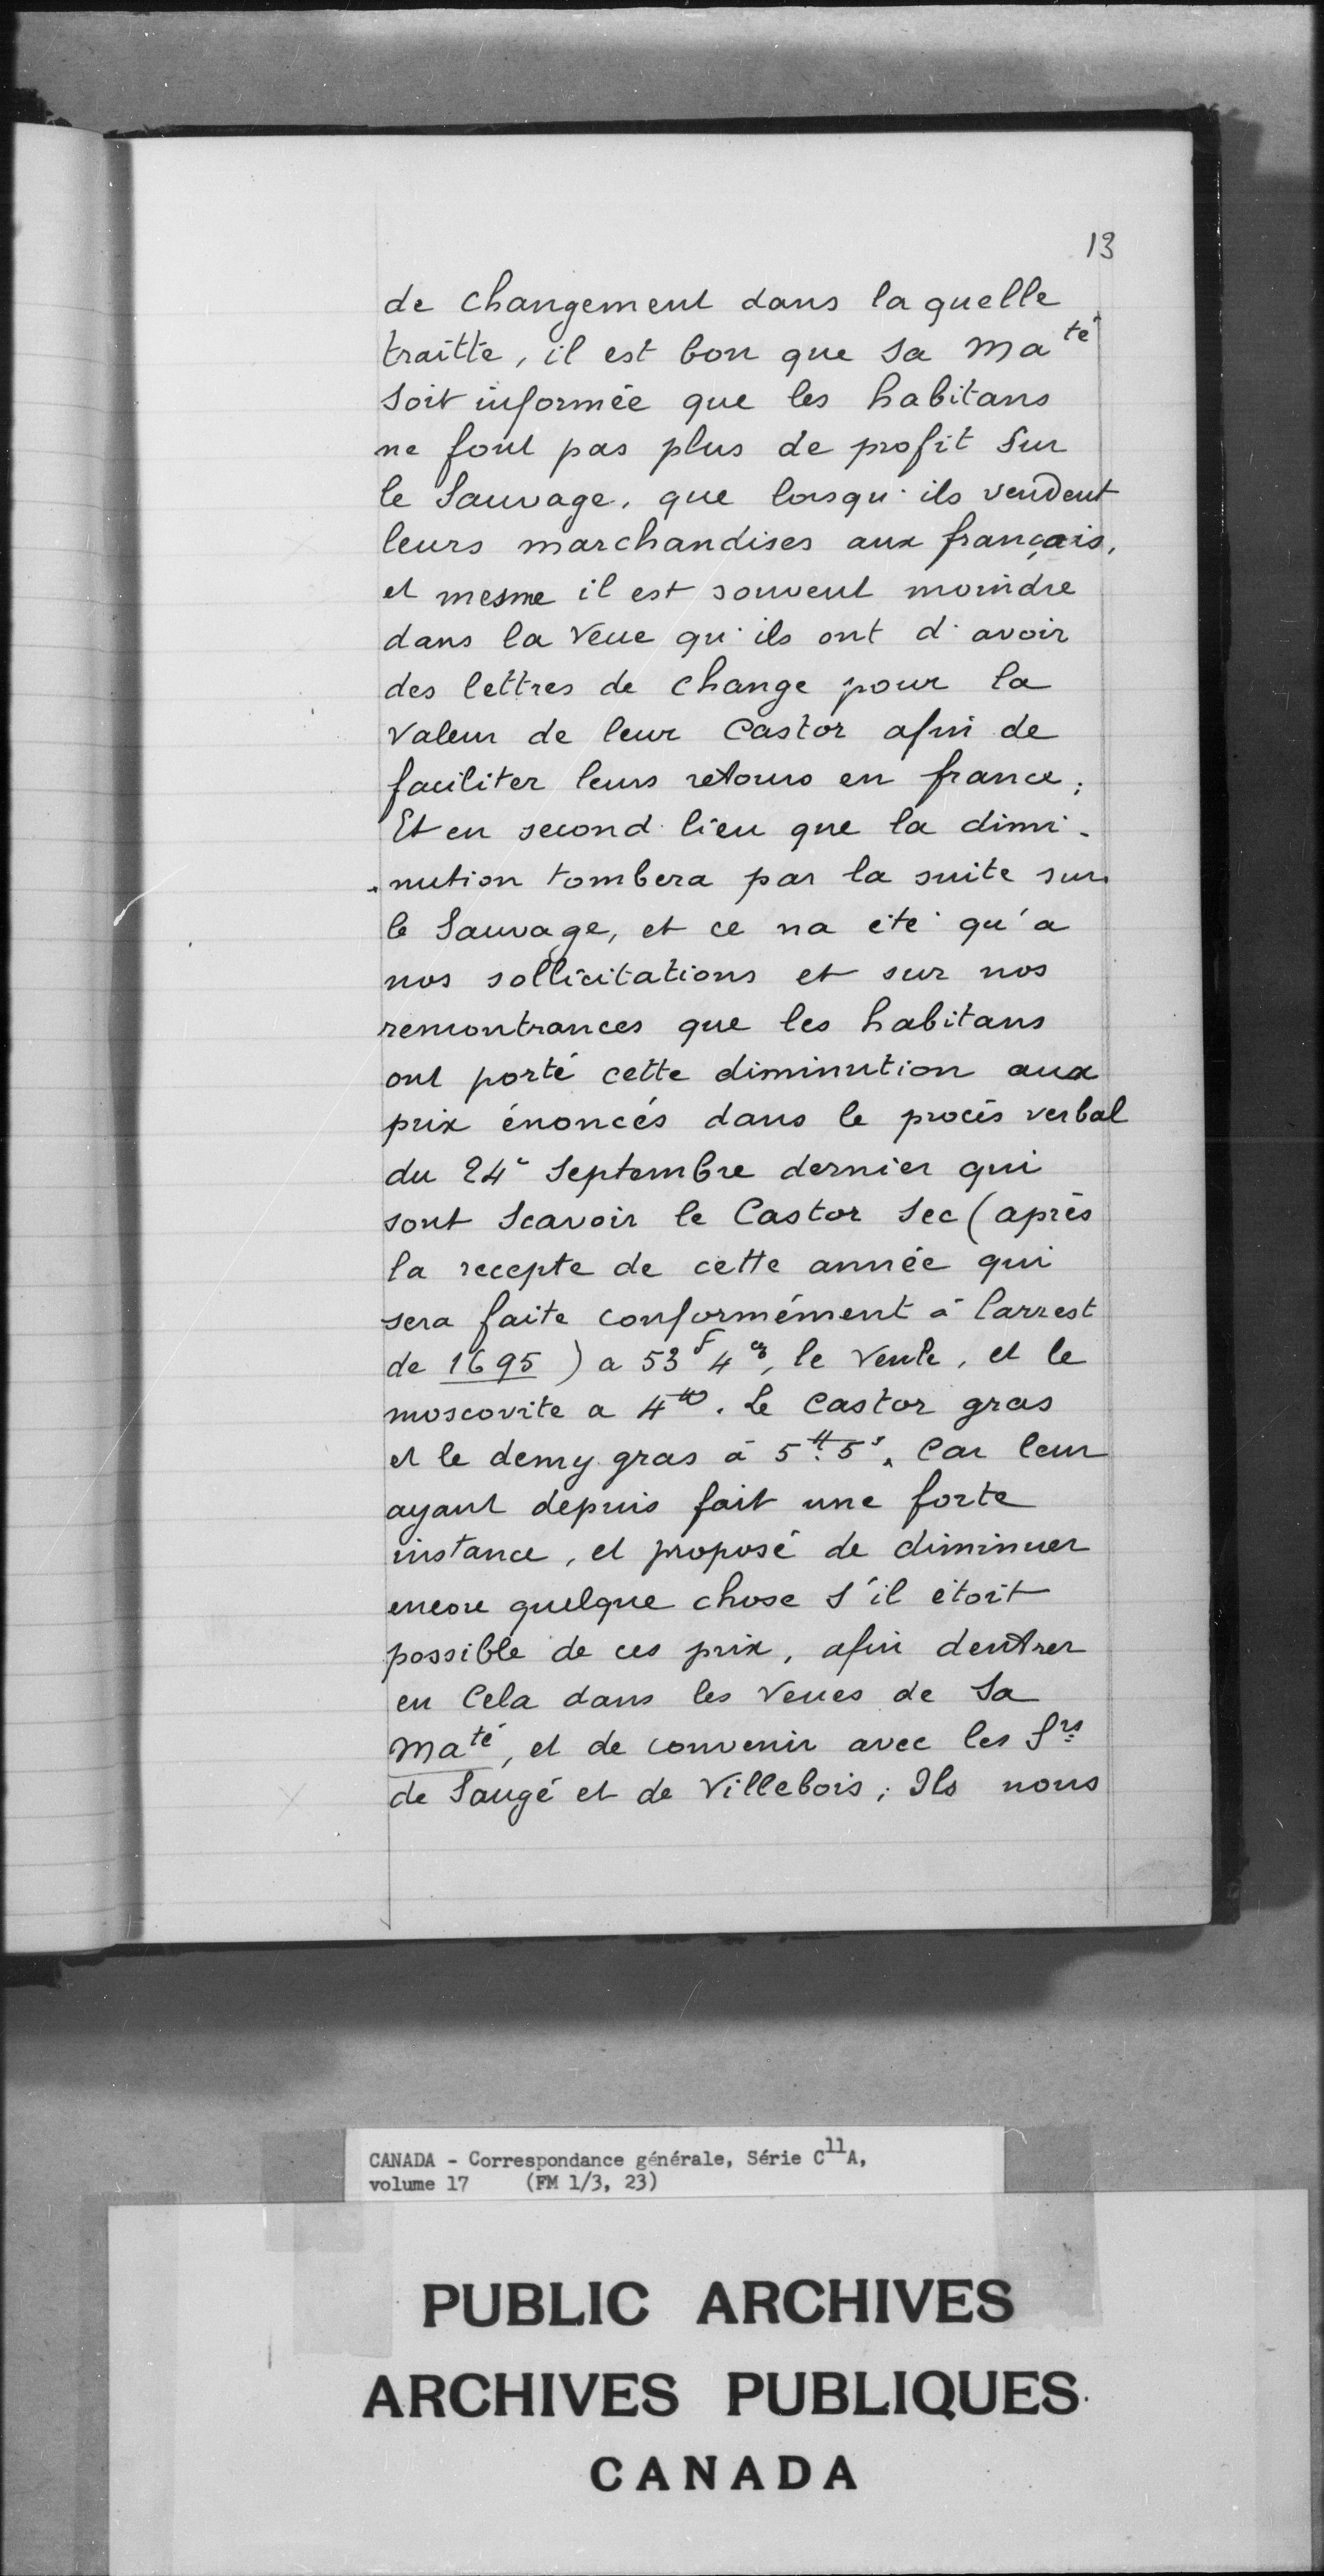 13
de changement dans laquelle
traitte, il est bon que Sa Ma té
soit informée que les habitans
ne font pas plus de profit Sur
le Sauvage, que lorsqu'ils vendent
leurs marchandises aux français,
et mesme il est souvent moindre
dans la Veue qu'ils ont d'avoir
des lettres de change pour la
Valeur de leur Castor afin de
faciliter leurs retours en france;
Et en second lieu que la dimi-
-nution tombera par la suite sur
le Sauvage, et ce na été qu'a
nos sollicitations et sur nos
remontrances que les habitans
ont porté cette diminution aux
prix énoncés dans le procès verbal
du 24e Septembre dernier qui
sont Scavoir le Castor Sec (après
la recepte de cette année qui
sera faite conformément à larrest
de 1695) a 53 s 4 , le Veule, et le
moscovite a 4 tt. Le Castor gras
et le demy gras à 5 tt. 5 s. Car leur
ayant depuis fait une forte
instance, et proposé de diminuer
encore quelque chose S'il étoit
possible de ces prix, afin dentrer
en Cela dans les Veues de Sa
Maté, et de convenir avec les Srs
de Saugé et de Villebois; Ils nous
CANADA - Correspondance générale, Série C11A,
volume 17 (FM 1/3, 23)
PUBLIC ARCHIVES
ARCHIVES PUBLIQUES
CANADA